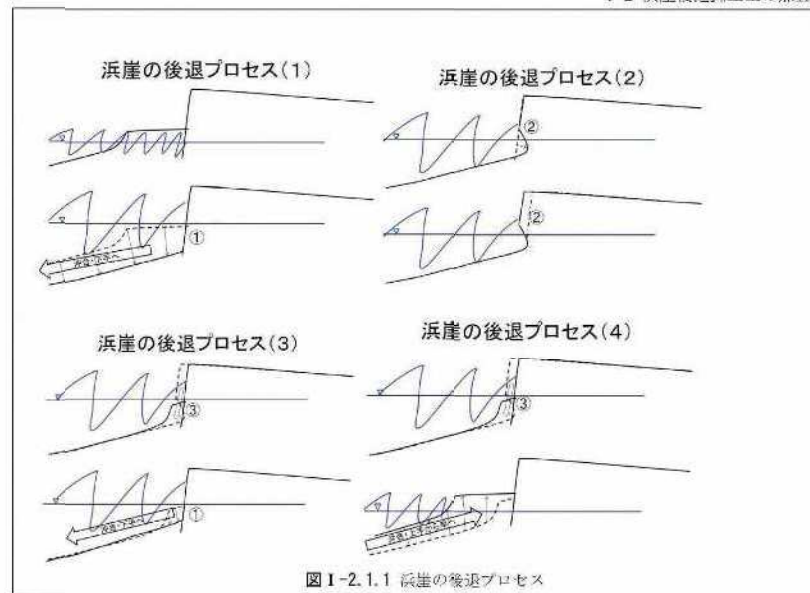 浜崖の後退プロセス(1)
浜崖の後退プロセス(2)
②
①
②
浜崖の後退プロセス(3)
浜崖の後退プロセス(4)
③
③
①
図Ⅰ-2.1.1 浜崖の後退プロセス